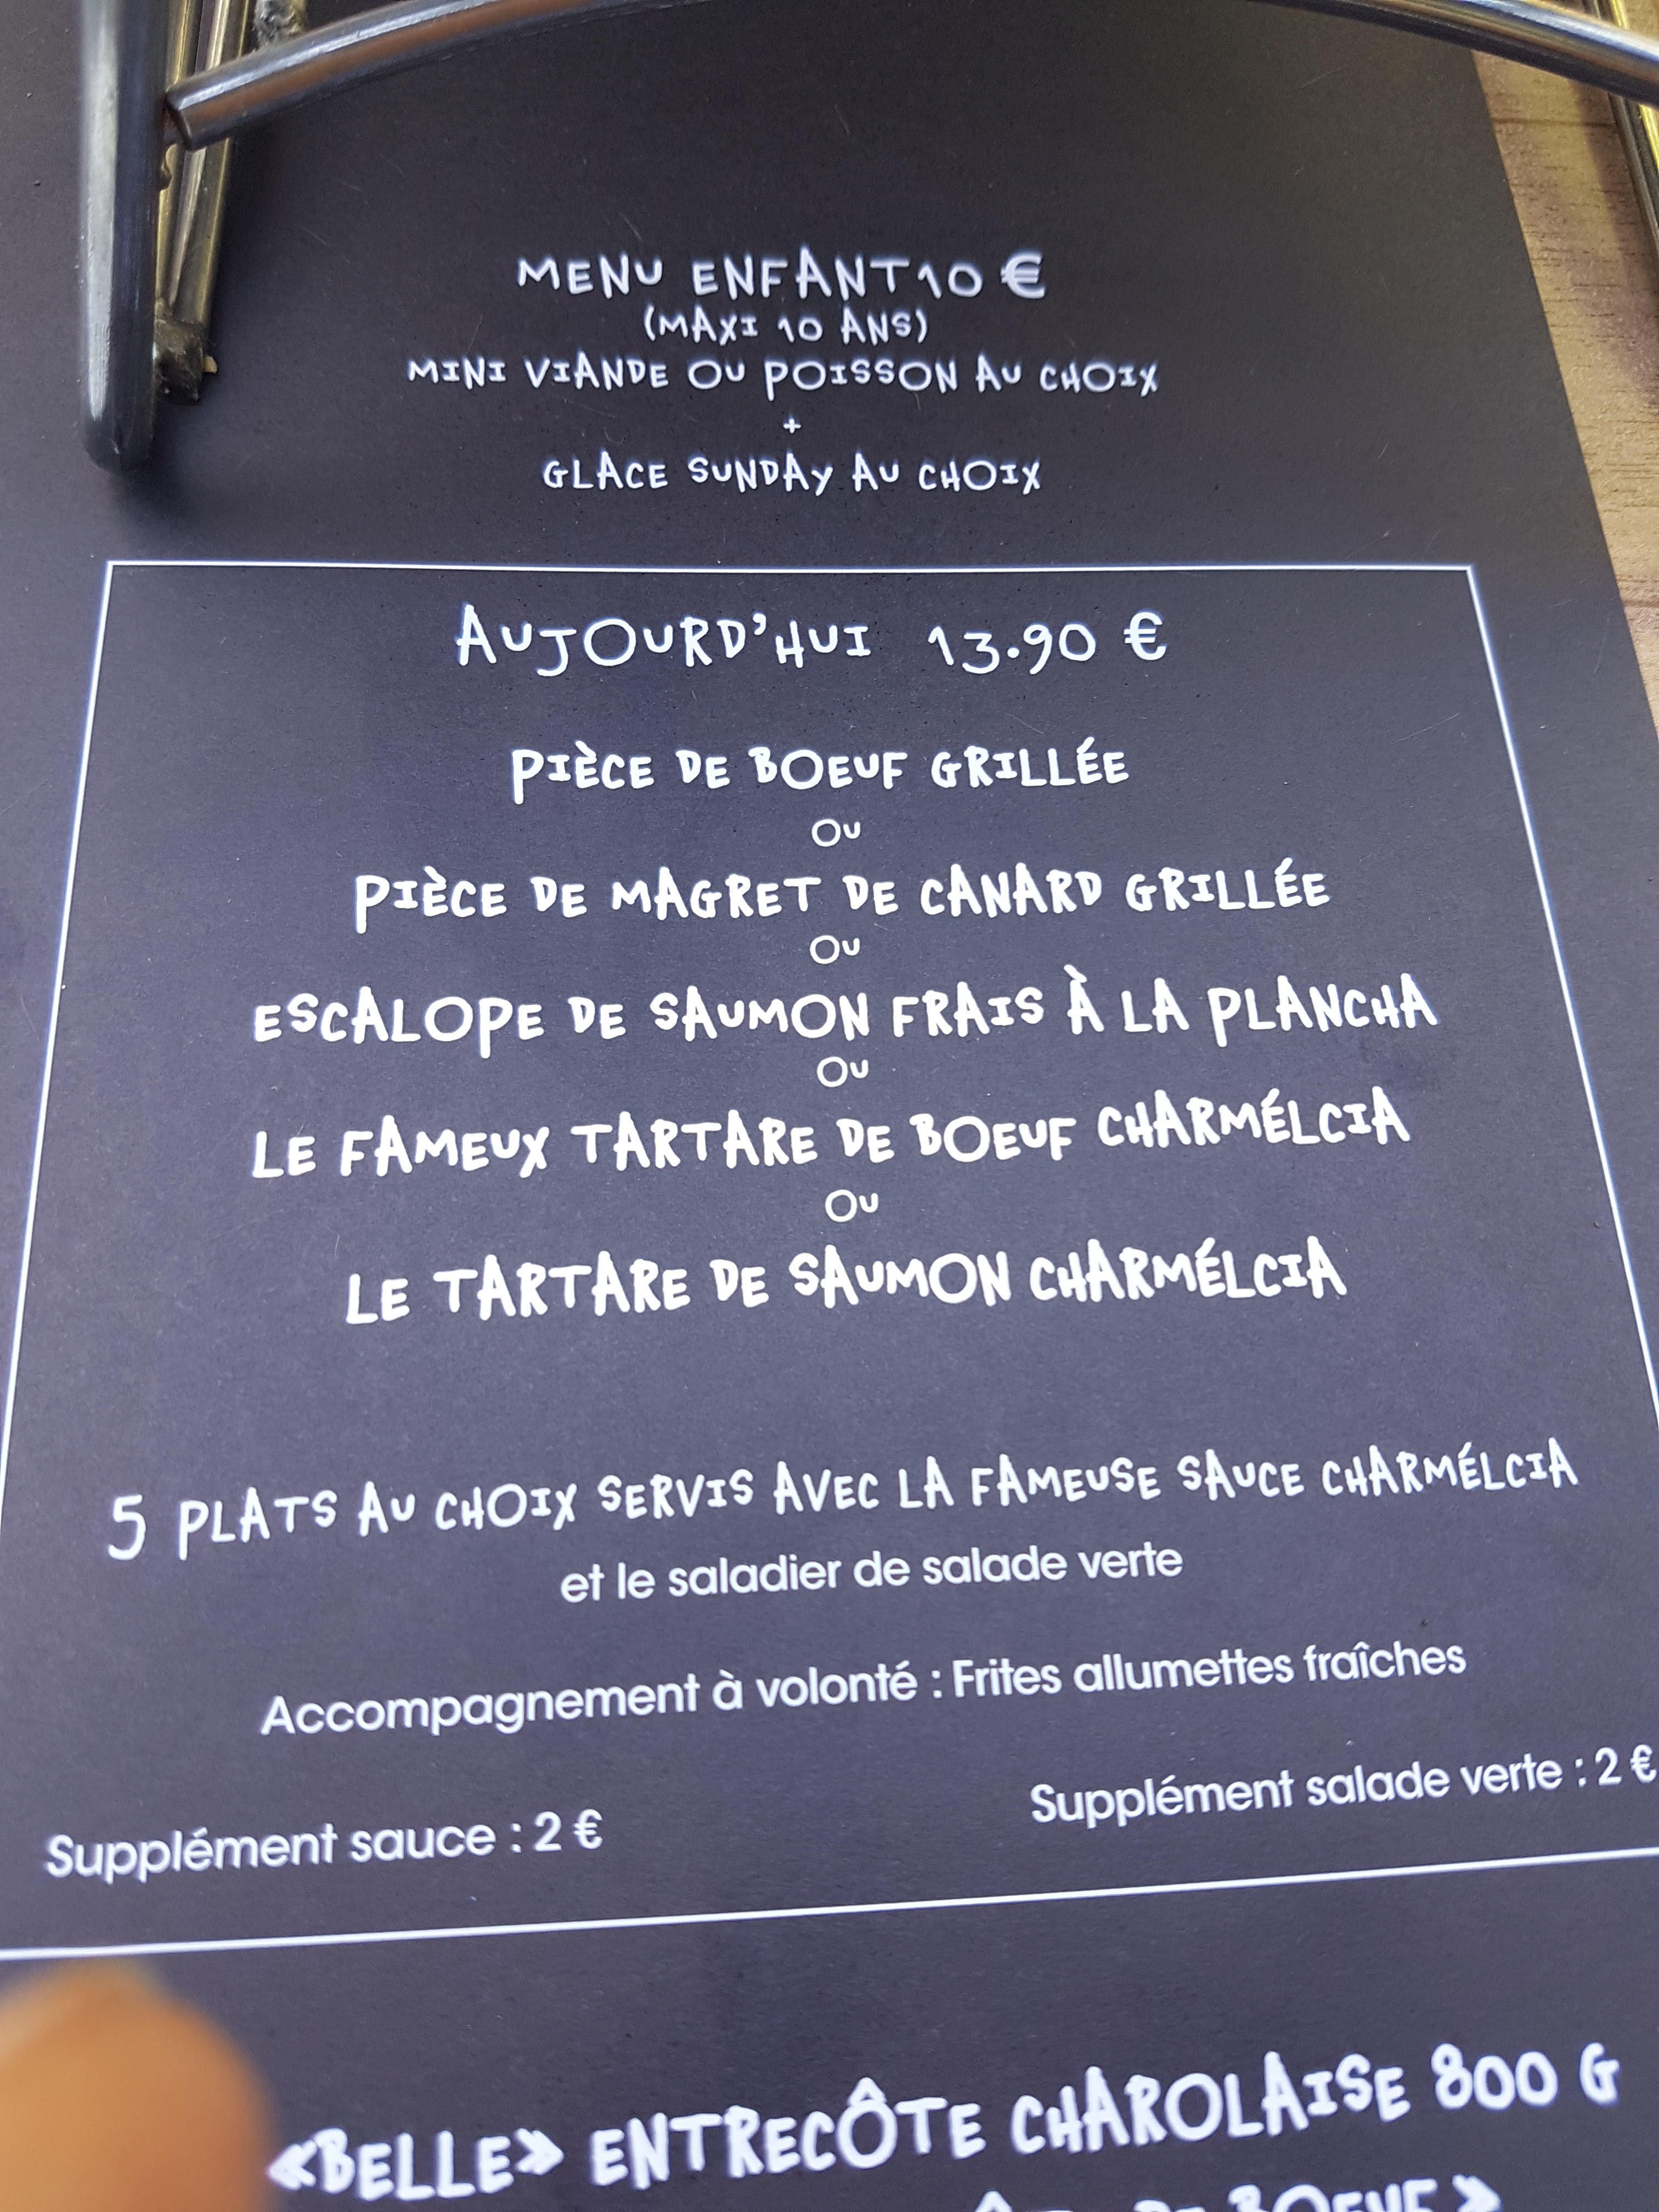 MENU ENFANT 10 €
(MAXI 10 ANS)
MINI VIANDE OU POISSON AU CHOIX
+
GLACE SUNDAY AU CHOIX
AUJOURD'HUI 13.90 €
PIÈCE DE BOEUF GRILLÉE
OU
PIÈCE DE MAGRET DE CANARD GRILLÉE
OU
ESCALOPE DE SAUMON FRAIS À LA PLANCHA
OU
LE FAMEUX TARTARE DE BOEUF CHARMÉLCIA
OU
LE TARTARE DE SAUMON CHARMÉLCIA
5 PLATS AU CHOIX SERVIS AVEC LA FAMEUSE SAUCE CHARMÉLCIA
et le saladier de salade verte
Accompagnement à volonté : Frites allumettes fraîches
Supplément sauce : 2 €
Supplément salade verte : 2 €
«BELLE» ENTRECÔTE CHAROLAISE 800 G
BOEUF »